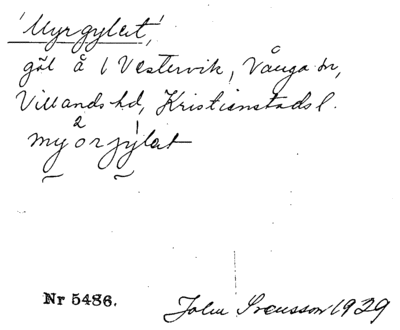 'Myrgylet'
göl å / Vestervik, Vånga sn,
Villands hd, Kristianstads l.
my2orjylet
Nr 5486. John Svensson 1929